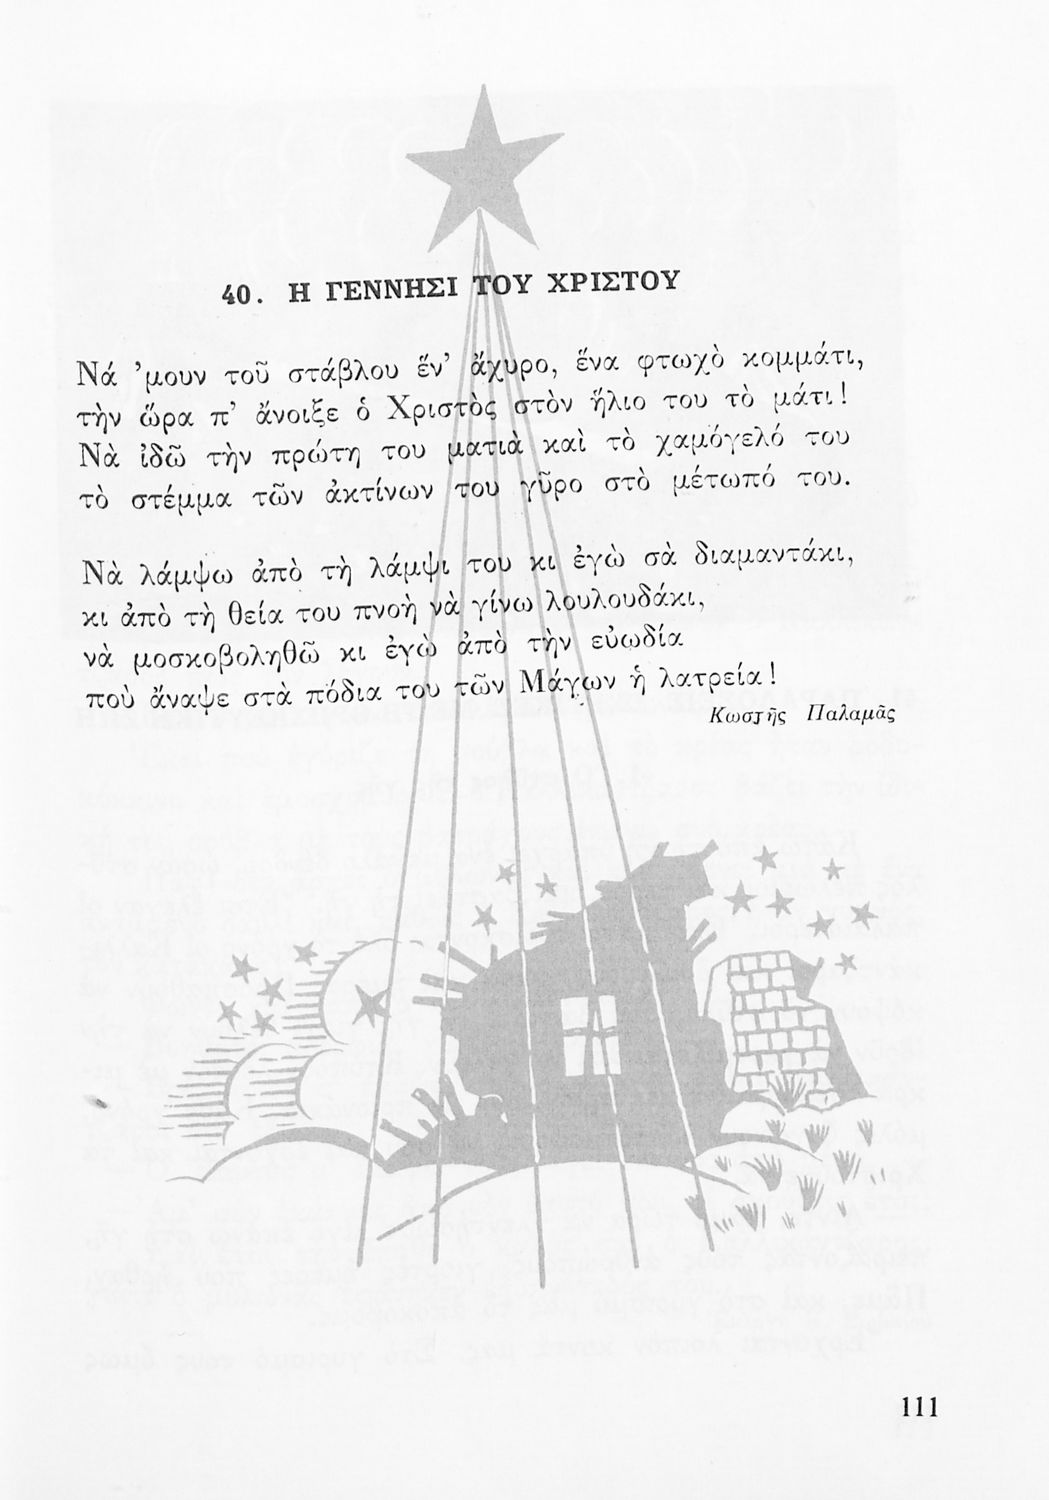 40. Η ΓΕΝΝΗΣΙ ΤΟΥ ΧΡΙΣΤΟΥ
Νά ’μουν τοῦ στάβλου ἕν’ ἄχυρο, ἕνα φτωχὸ κομμάτι,
τὴν ὥρα π’ ἄνοιξε ὁ Χριστὸς στὸν ἥλιο του τὸ μάτι!
Νὰ ἰδῶ τὴν πρώτη του ματιὰ καὶ τὸ χαμόγελό του
τὸ στέμμα τῶν ἀκτίνων του γῦρο στὸ μέτωπό του.
Νὰ λάμψω ἀπὸ τὴ λάμψι του κι ἐγὼ σὰ διαμαντάκι,
κι ἀπὸ τὴ θεία του πνοὴ νὰ γίνω λουλουδάκι,
νὰ μοσκοβοληθῶ κι ἐγὼ ἀπὸ τὴν εὐωδία
ποὺ ἄναψε στὰ πόδια του τῶν Μάγων ἡ λατρεία!
Κωστῆς Παλαμᾶς
111